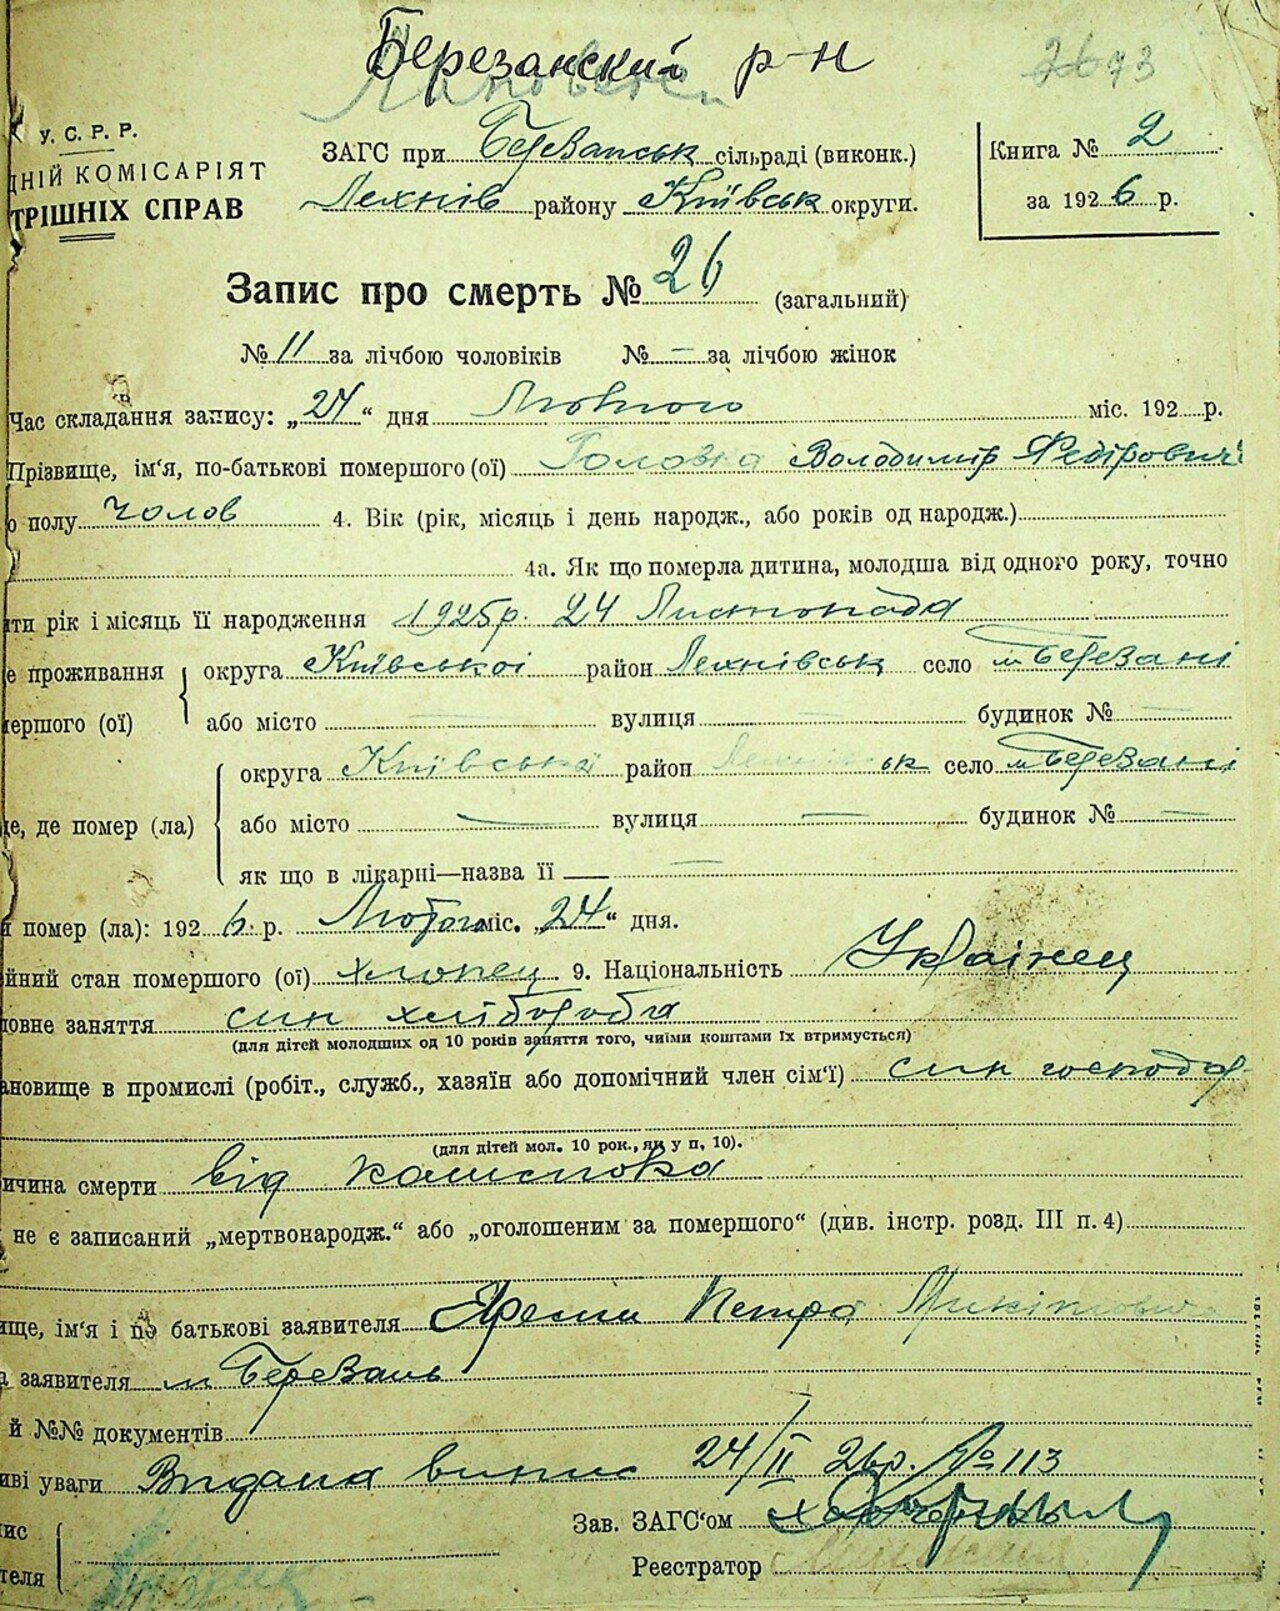 Березанский р-н
93
У. С. Р. Р.
ДНІЙ КОМІСАРІЯТ
ТРІШНІХ СПРАВ
ЗАГС при Березанськ сільраді (виконк.)
Лехнів району Київськ округи.
Книга № 2
за 1926 р.
Запис про смерть № 26 (загальний)
№ 11 за лічбою чоловіків № — за лічбою жінок
Час складання запису: „24“ дня Лютого міс. 192 р.
Прізвище, ім'я, по-батькові помершого (ої) Головка Володимир Федірович
о полу чолов 4. Вік (рік, місяць і день народж., або років од народж.)
4а. Як що померла дитина, молодша від одного року, точно
ти рік і місяць її народження 1925р. 24 Листопада
е проживання округа Київськоі район Лехнівськ село м Березані
мершого (ої) або місто — вулиця — будинок № —
округа Київська район Лехнівськ село м Березані
це, де помер (ла) або місто — вулиця — будинок № —
як що в лікарні—назва її —
и помер (ла): 1926 р. Лютого міс. „24“ дня.
йний стан помершого (ої) хлопец 9. Національність Українец
ловне заняття син хлібороба
(для дітей молодших од 10 років заняття того, чиїми коштами їх втримується)
ановище в промислі (робіт., служб., хазяїн або допомічний член сім'ї) син господар
(для дітей мол. 10 рок., як у п, 10).
ичина смерти від
не є записаний „мертвонародж.“ або „оголошеним за помершого“ (див. інстр. розд. III п. 4)
ище, ім'я і по батькові заявителя Яреми Петра Микітовича
а заявителя м Березань
й №№ документів
иві уваги Видана випис 24/II 26р. № 113
ис
теля
Зав. ЗАГС'ом
Реєстратор